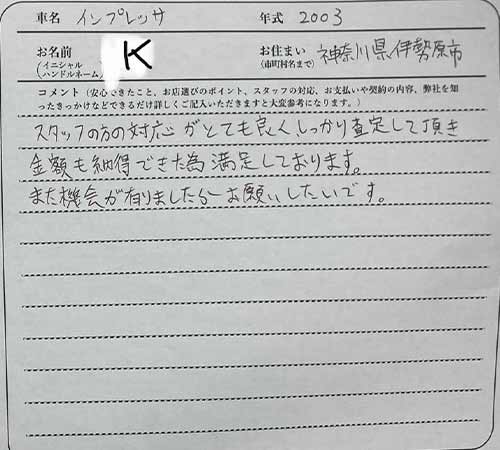 車名 インプレッサ 年式 2003
お名前 K お住まい 神奈川県伊勢原市
(イニシャル ハンドルネーム) (市町村名まで)
コメント(安心できたこと、お店選びのポイント、スタッフの対応、お支払いや契約の内容、弊社を知
ったきっかけなどできるだけ詳しくご記入いただきますと大変参考になります。)
スタッフの方の対応がとても良くしっかり査定して頂き
金額も納得できた為満足しております。
また機会が有りましたらお願いしたいです。